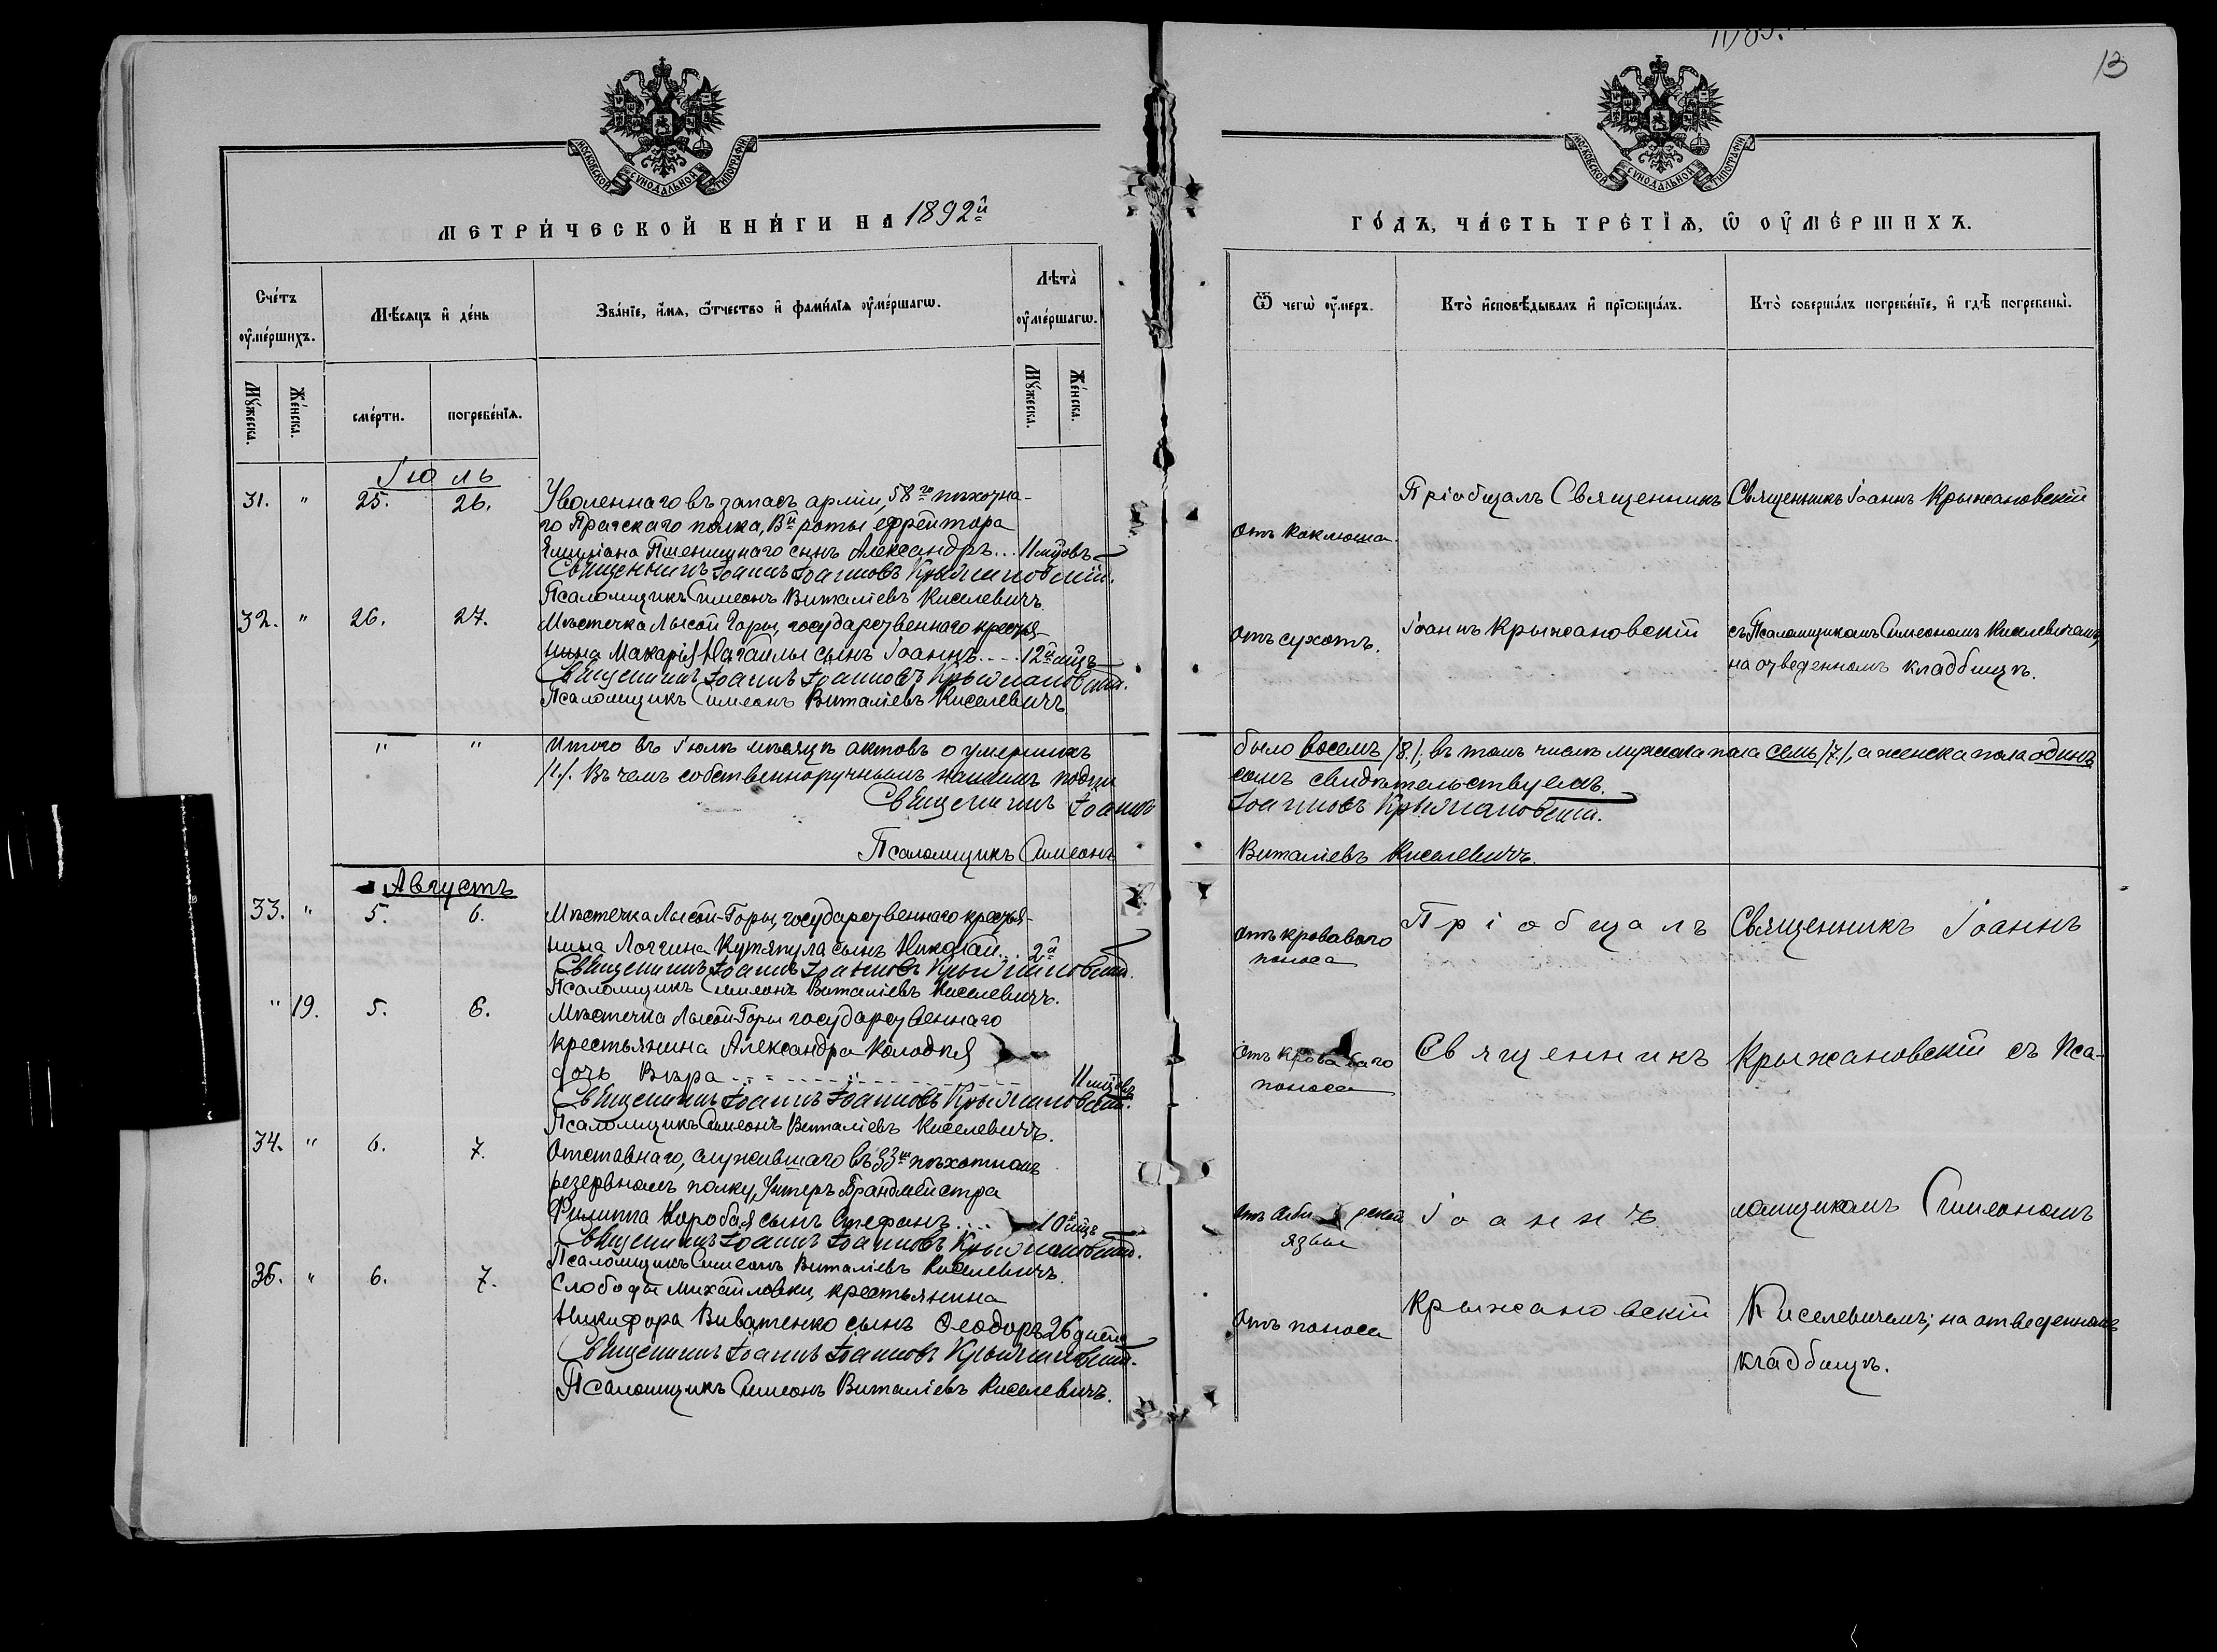 13
МОСКОВСКОЙ СѴНОДАЛЬНОЙ ТИПОГРАФІИ
МОСКОВСКОЙ СѴНОДАЛЬНОЙ ТИПОГРАФІИ
МЕТРИ́ЧЕСКОЙ КНИ́ГИ НА 1892й
ГО́ДЪ, ЧА́СТЬ ТРЕ́ТІѦ, Ѡ҆ ОУ҆МЕ́РШИХЪ.
Сче́тъ оу҆ме́ршихъ.
Мѣ́сяцъ и҆ де́нь
Зва́нїе, и҆́мѧ, ѻ҆́тчество и҆ фами́лїѧ оу҆ме́ршагѡ.
Лѣ́та оу҆ме́ршагѡ.
Ѿ чегѡ̀ оу҆́меръ.
Кто̀ и҆сповѣ́дывалъ и҆ прїѡбща́лъ.
Кто̀ соверша́лъ погребе́нїе, и҆ гдѣ̀ погребены̀.
Мꙋ́жеска.
Же́нска.
сме́рти.
погребе́нїѧ.
Мꙋ́жеска.
Же́нска.
Іюль
31. " 25. 26. Уволеннаго въ запасъ арміи, 58го пѣхотна-
го Прагскаго полка, Вй роты ефрейтора
Пшеничнаго сынъ Александръ... 11 мцовъ
Священникъ Іоаннъ Іоанновъ Крыжановскій.
Псаломщикъ Симеонъ Виталіевъ Киселевичъ
отъ коклюша
Пріобщалъ Священникъ
Священникъ Іоаннъ Крыжановскій
32. " 26. 27. Мѣстечка Лысой Горы, государственнаго крестья-
нина Макарія Нагайлы сынъ Іоаннъ.... 12
Священникъ Іоаннъ Іоанновъ Крыжановскій.
Псаломщикъ Симеонъ Виталіевъ Киселевичъ
отъ сухотъ.
Іоаннъ Крыжановскій
съ Псаломщикомъ Симеономъ Киселевичемъ,
на отведенномъ кладбищѣ.
" " Итого въ Іюлѣ мѣсяцѣ актовъ о умершихъ
было восемь /8./, въ томъ числѣ мужеска пола семь /7./, а женска пола одинъ
/1./. Въ чемъ собственноручнымъ нашимъ подпи
сомъ свидѣтельствуемъ.
Священникъ Іоаннъ
Іоанновъ Крыжановскій.
Псаломщикъ Симеонъ
Виталіевъ Киселевичъ.
Августъ
33. " 5. 6. Мѣстечка Лысой-Горы, государственнаго крестья-
нина Логгина сынъ Николай... 2й
Священникъ Іоаннъ Іоанновъ Крыжановскій.
Псаломщикъ Симеонъ Виталіевъ Киселевичъ.
отъ кроваваго
поноса
Пріобщалъ
Священникъ Іоаннъ
" 19. 5. 6. Мѣстечка Лысой-Горы государственнаго
крестьянина Александра Колодія
дочь Вѣра 11 мцовъ
Священникъ Іоаннъ Іоанновъ Крыжановскій.
Псаломщикъ Симеонъ Виталіевъ Киселевичъ.
отъ кроваваго
поноса
Священникъ
Крыжановскій съ Пса-
34. " 6. 7. Отставнаго, служившаго въ 33мъ пѣхотномъ
резервномъ полку, Унтеръ Брандмейстра
Филиппа Коробая сынъ Стефанъ.... 10
Священникъ Іоаннъ Іоанновъ Крыжановскій.
Псаломщикъ Симеонъ Виталіевъ Киселевичъ.
язвы
Іоаннъ
ломщикомъ Симеономъ
35. " 6. 7. Слободы Михайловки, крестьянина
Никифора Виватенко сынъ Ѳеодоръ 26 дней
Священникъ Іоаннъ Іоанновъ Крыжановскій.
Псаломщикъ Симеонъ Виталіевъ Киселевичъ.
отъ поноса
Крыжановскій
Киселевичемъ; на отведенномъ
кладбищѣ.